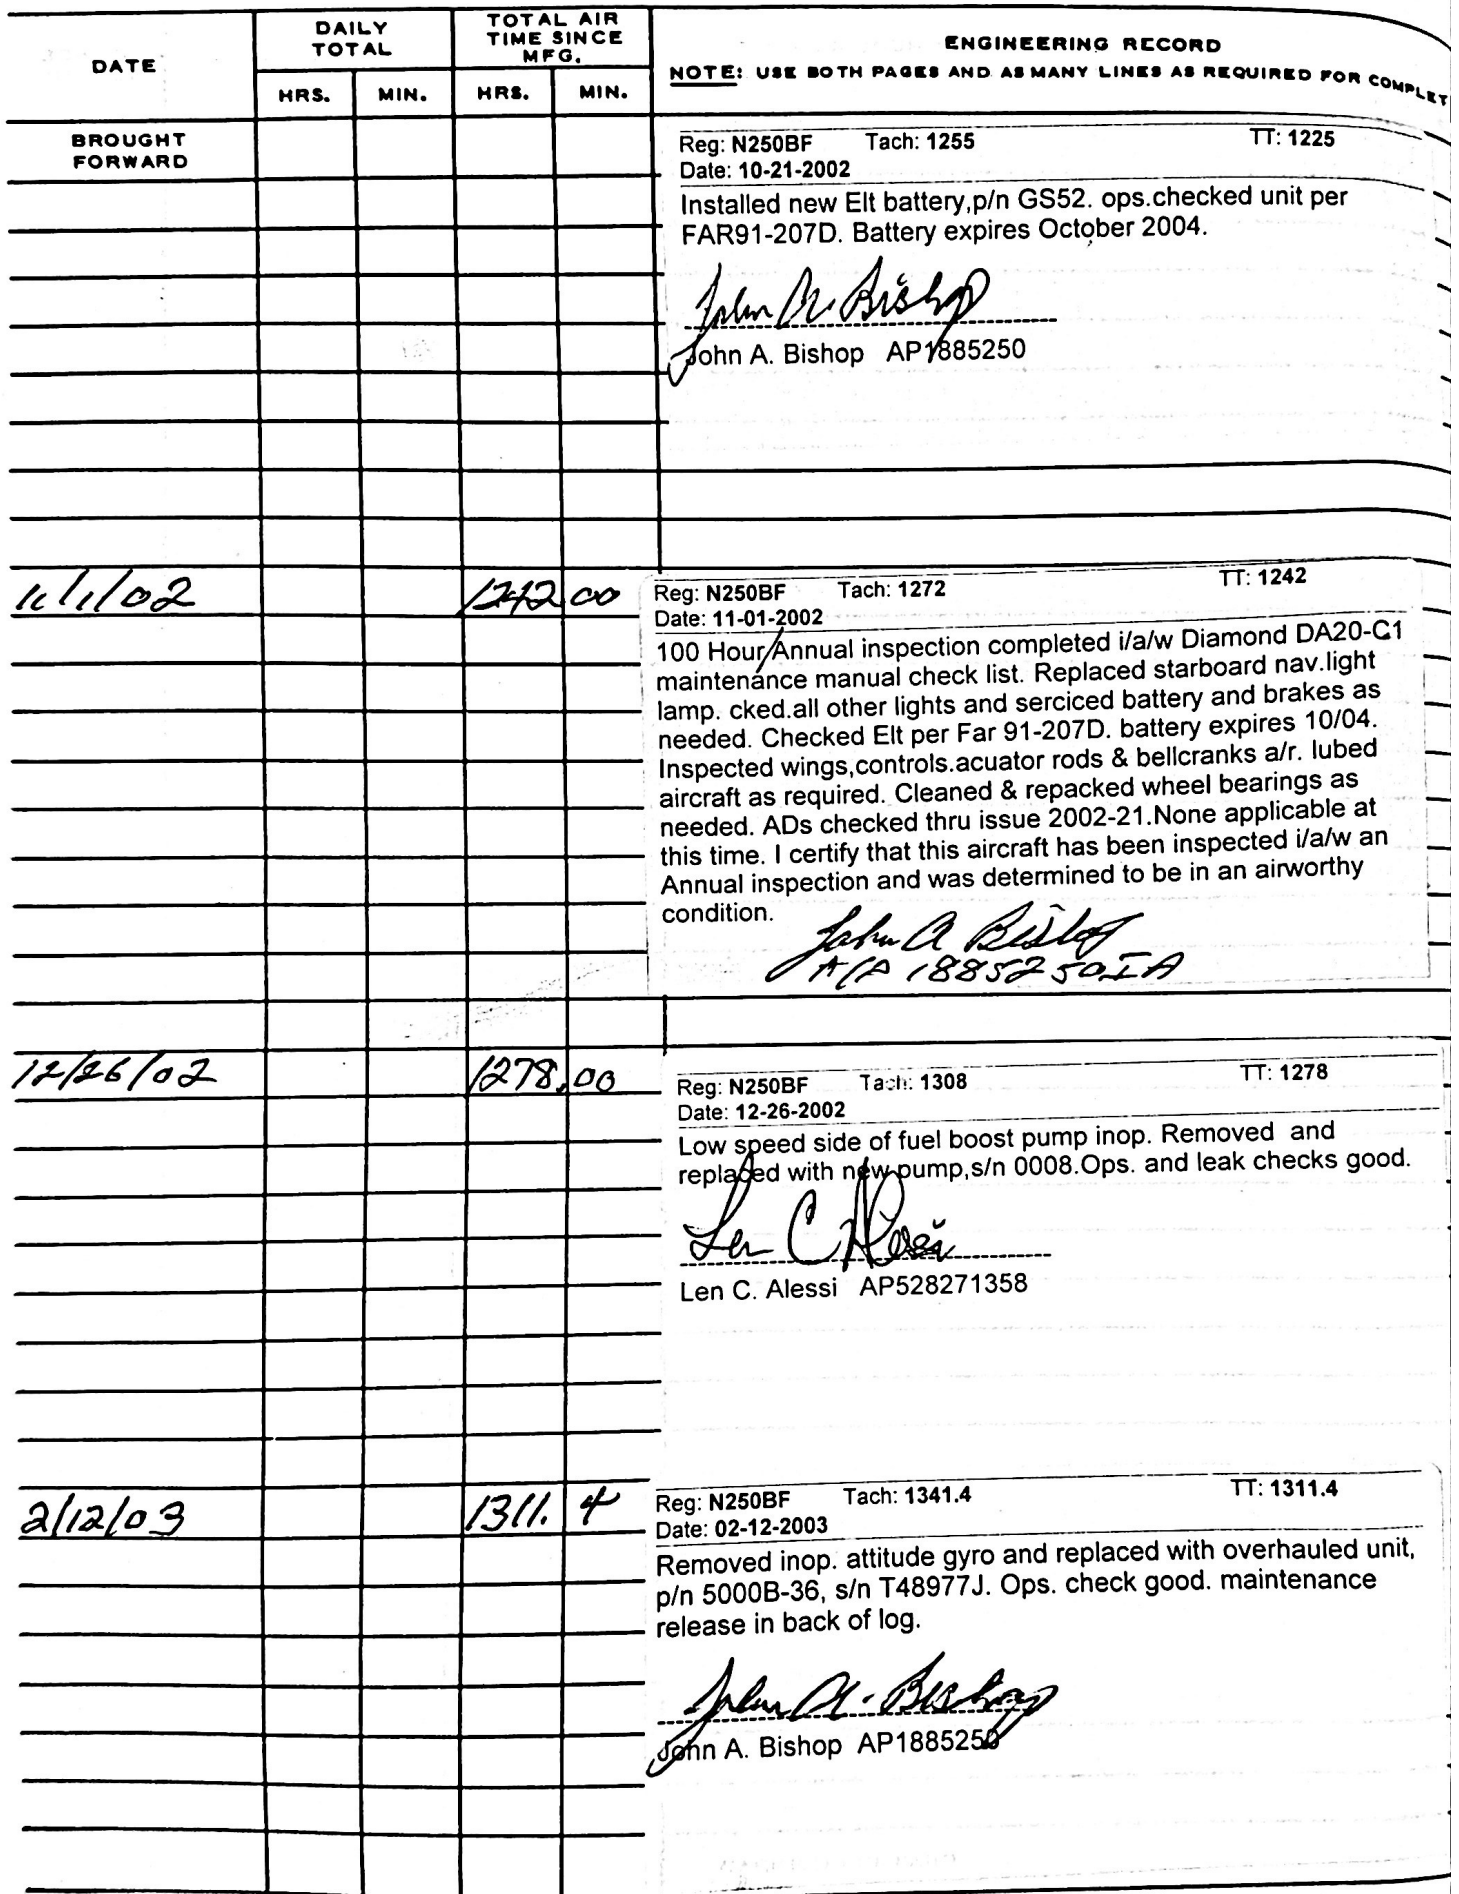 DATE
DAILY
TOTAL
TOTAL AIR
TIME SINCE
MFG.
ENGINEERING RECORD
NOTE: USE BOTH PAGES AND AS MANY LINES AS REQUIRED FOR COMPLET
HRS. MIN. HRS. MIN.
BROUGHT
FORWARD
Reg: N250BF Tach: 1255 TT: 1225
Date: 10-21-2002
Installed new Elt battery,p/n GS52. ops.checked unit per
FAR91-207D. Battery expires October 2004.
John A. Bishop
John A. Bishop AP1885250
11/1/02 1242 00
Reg: N250BF Tach: 1272 TT: 1242
Date: 11-01-2002
100 Hour/Annual inspection completed i/a/w Diamond DA20-C1
maintenance manual check list. Replaced starboard nav.light
lamp. cked.all other lights and serciced battery and brakes as
needed. Checked Elt per Far 91-207D. battery expires 10/04.
Inspected wings,controls.acuator rods & bellcranks a/r. lubed
aircraft as required. Cleaned & repacked wheel bearings as
needed. ADs checked thru issue 2002-21.None applicable at
this time. I certify that this aircraft has been inspected i/a/w an
Annual inspection and was determined to be in an airworthy
condition.
John A Bishop
A/P 1885250IA
12/26/02 1278.00
Reg: N250BF Tach: 1308 TT: 1278
Date: 12-26-2002
Low speed side of fuel boost pump inop. Removed and
replaced with new pump,s/n 0008.Ops. and leak checks good.
Len C Alessi
Len C. Alessi AP528271358
2/12/03 1311. 4
Reg: N250BF Tach: 1341.4 TT: 1311.4
Date: 02-12-2003
Removed inop. attitude gyro and replaced with overhauled unit,
p/n 5000B-36, s/n T48977J. Ops. check good. maintenance
release in back of log.
John A. Bishop
John A. Bishop AP1885250